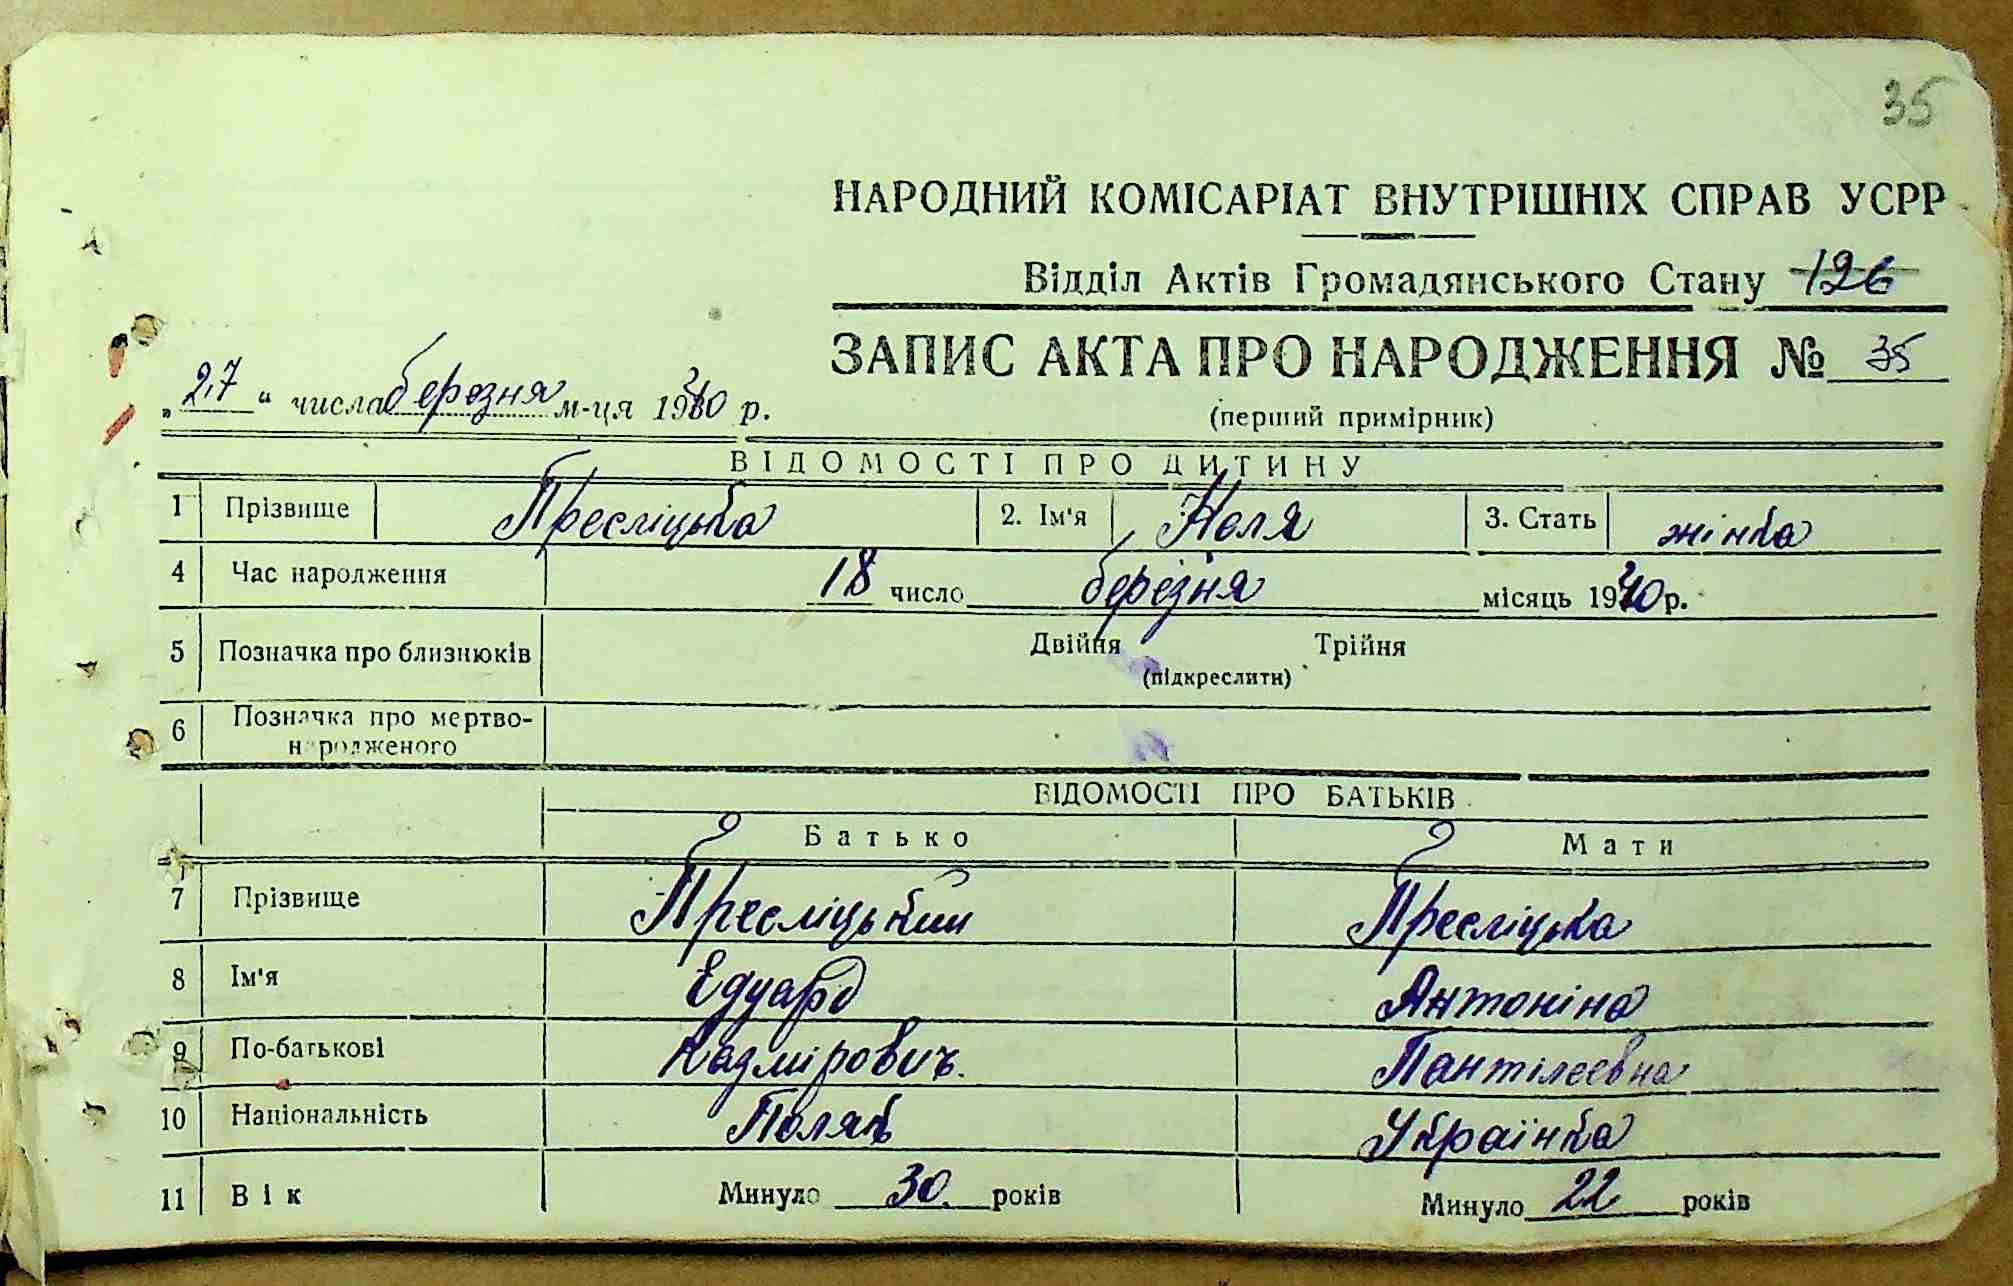 35
НАРОДНИЙ КОМІСАРІАТ ВНУТРІШНІХ СПРАВ УСРР
Відділ Актів Громадянського Стану 126
ЗАПИС АКТА ПРО НАРОДЖЕННЯ № 35
„27“ числа березня м-ця 1940 р.
(перший примірник)
ВІДОМОСТІ ПРО ДИТИНУ
1 Прізвище Пресліцька 2. Ім'я Неля 3. Стать жінка
4 Час народження 18 число березня місяць 1940 р.
5 Позначка про близнюків Двійня Трійня
(підкреслити)
6 Позначка про мертво-
народженого
ВІДОМОСТІ ПРО БАТЬКІВ
Батько Мати
7 Прізвище Пресліцький Пресліцка
8 Ім'я Едуард Антоніна
9 По-батькові Казмірович. Пантілеевна
10 Національність Поляк Українка
11 Вік Минуло 30 років Минуло 22 років